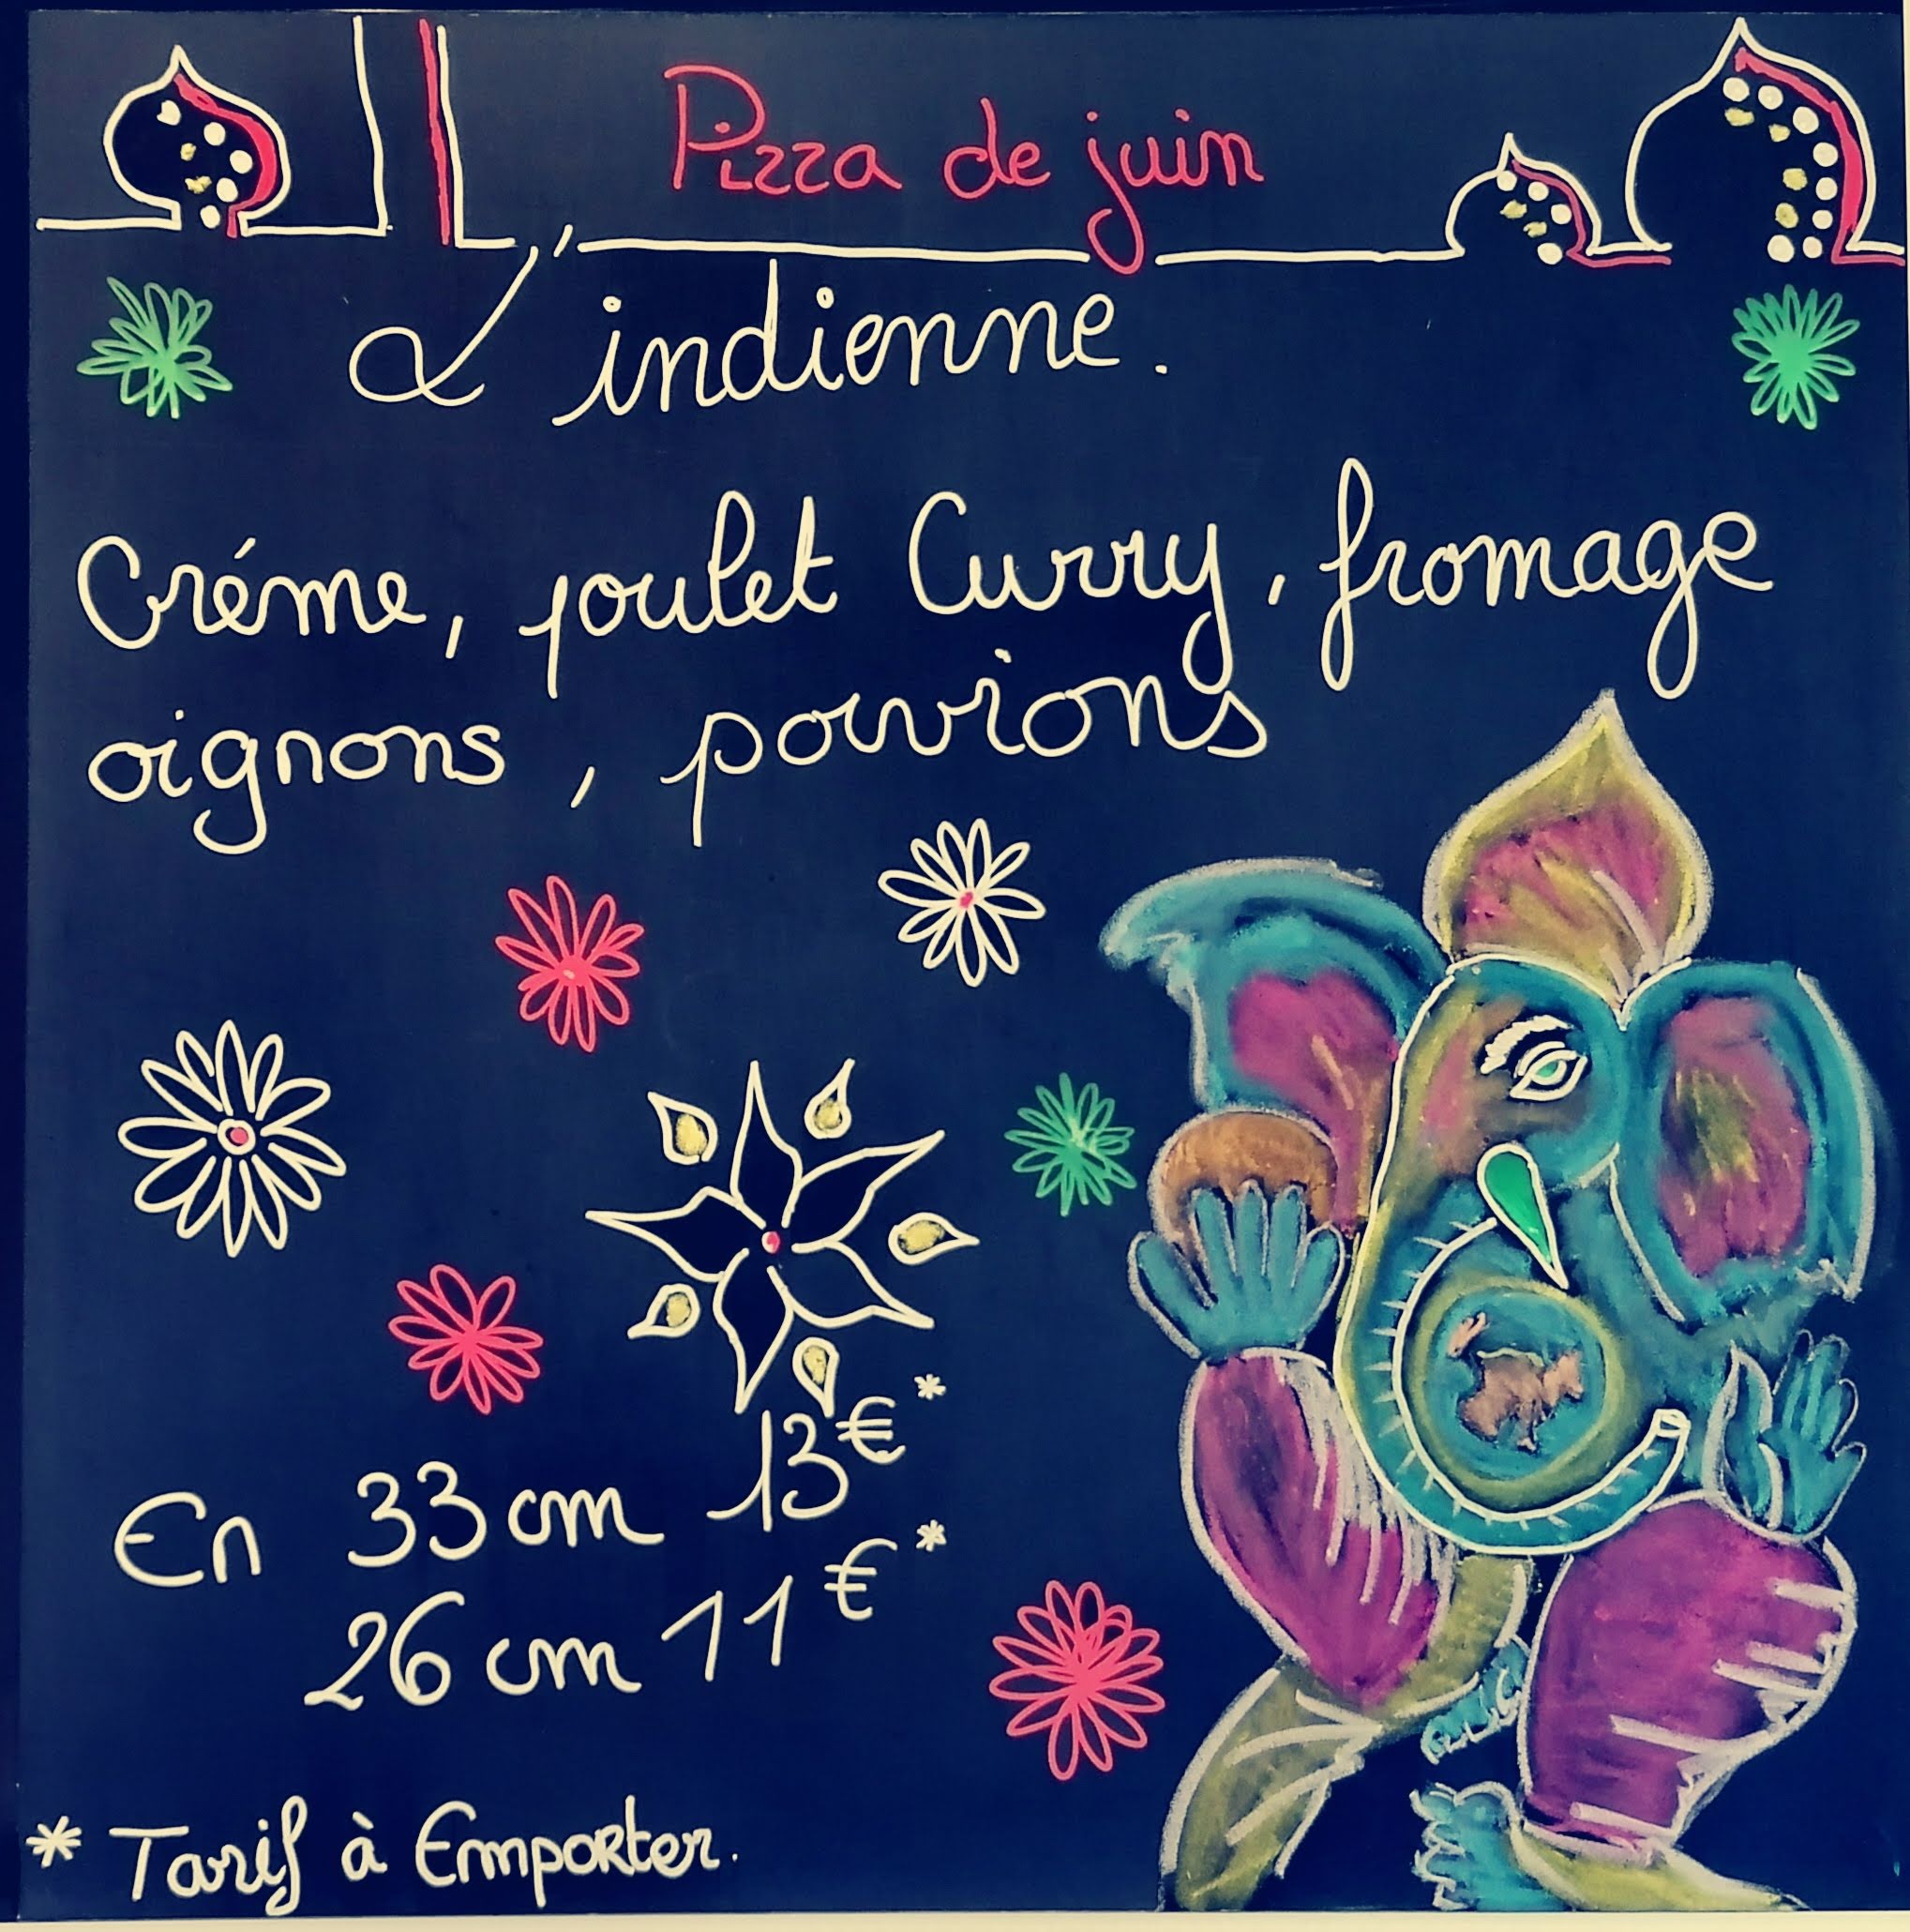 Pizza de juin
L'indienne.
Créme, poulet Curry, fromage
oignons, poivrons
En 33 cm 13€*
26 cm 11€*
* Tarif à Emporter.